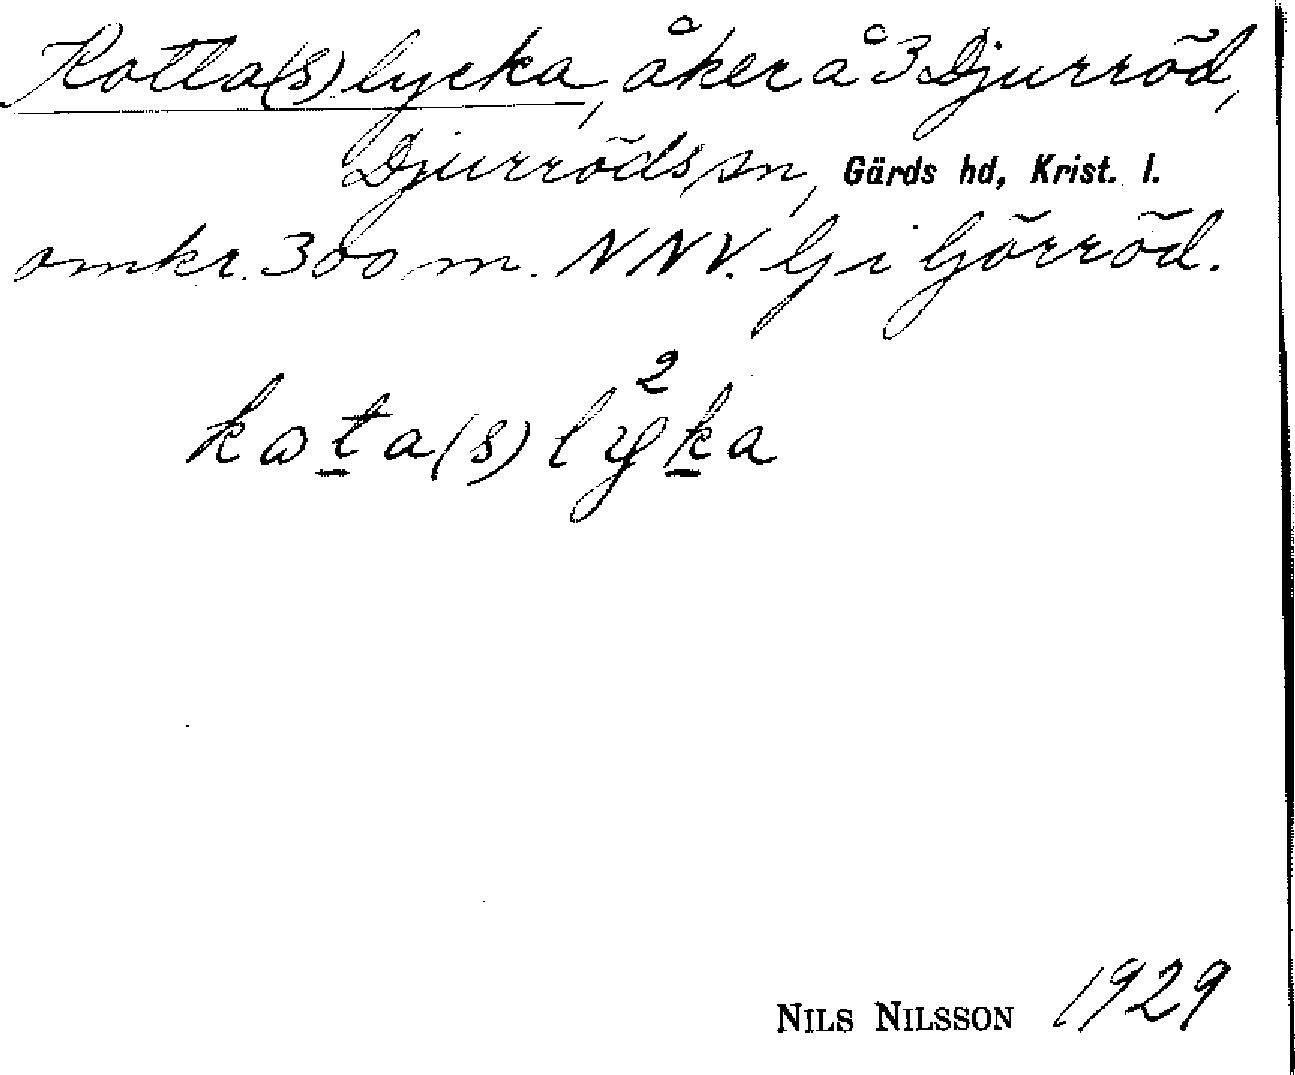 Kotta(s)lycka, åker å 3 Djurröd,
Djurröds sn, Gärds hd, Krist. l.
omkr. 300 m. NNV. lj i ljörröd.
kota(s) ly²ka
NILS NILSSON 1929